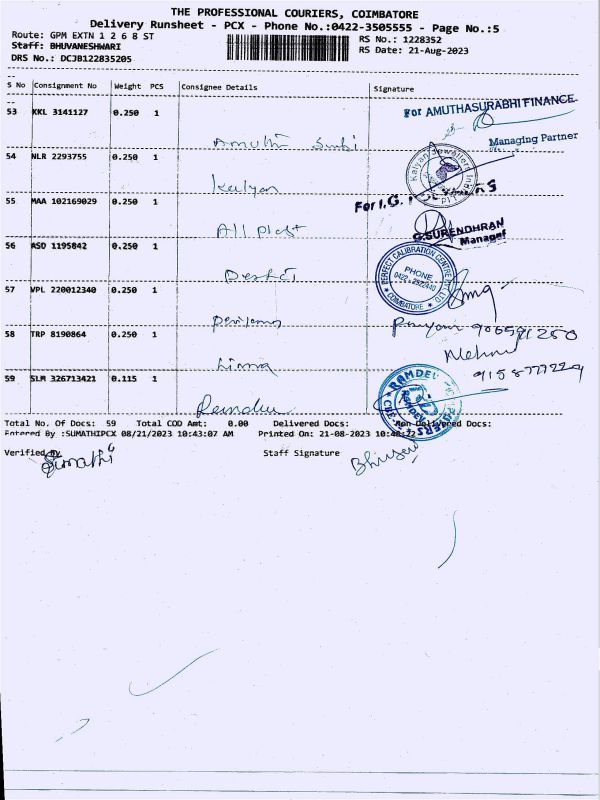 THE PROFESSIONAL COURIERS, COIMBATORE
Delivery Runsheet - PCX - Phone No.:0422-3505555 - Page No.:5
Route: GPM EXTN 1 2 6 8 ST
RS No.: 1228352
Staff: BHUVANESHWARI
RS Date: 21-Aug-2023
DRS No.: DCJB122835205
S No Consignment No Weight PCS Consignee Details Signature
53 KKL 3141127 0.250 1
For AMUTHASURABHI FINANCE
Managing Partner
54 NLR 2293755 0.250 1
Kalyan
Kalyan Jewellers
55 MAA 102169029 0.250 1
For I.G.
G.SURENDHRAN
Manager
56 ASD 1195842 0.250 1
PERFECT CALIBRATION CENTRE PVT LTD
PHONE
0422 - 2922440
COIMBATORE
57 VPL 220012340 0.250 1
58 TRP 8190864 0.250 1
59 SLM 326713421 0.115 1
RAMDEV
Total No. Of Docs: 59 Total COD Amt: 0.00 Delivered Docs: Non Delivered Docs:
Entered By :SUMATHIPCX 08/21/2023 10:43:07 AM Printed On: 21-08-2023 10:48:22
Verified By
Sumathi
Staff Signature